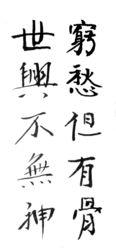 窮愁但有骨
世興不無神